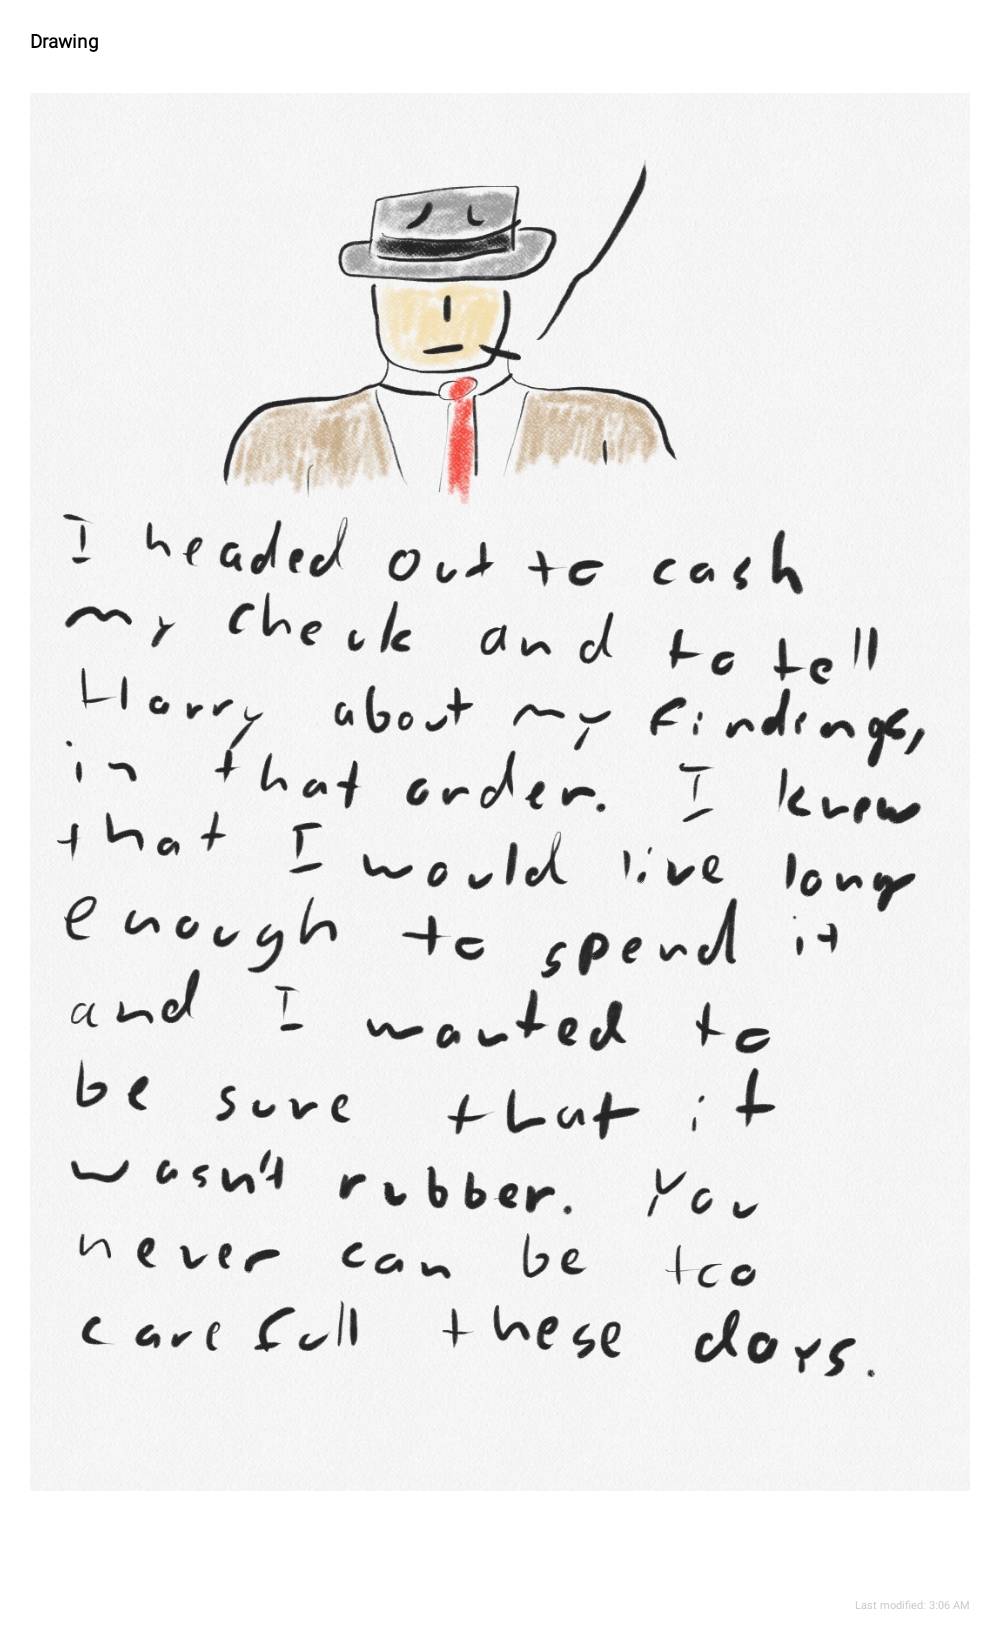 Drawing
I headed out to cash
my check and to tell
Harry about my findings,
in that order. I knew
that I would live long
enough to spend it
and I wanted to
be sure that it
wasn't rubber. You
never can be too
carefull these days.
Last modified: 3:06 AM